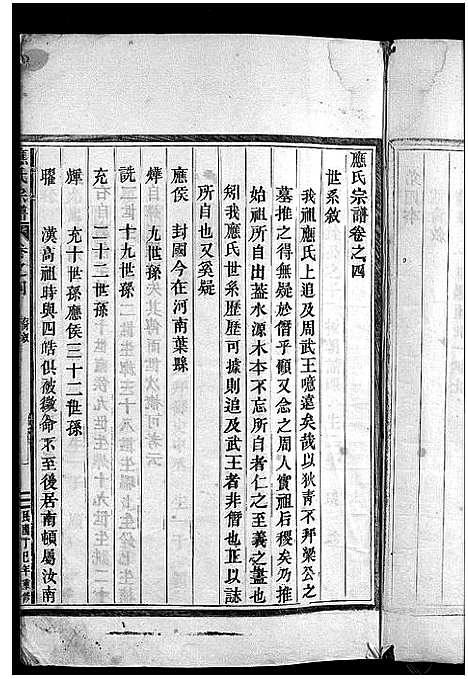 應氏宗譜卷之四
世系敘
我祖應氏上追及周武王噫遠矣哉以狄青不拜梁公之
墓推之得無疑於僭乎顧又念之周人實祖后稷矣乃推
始祖所自出蓋水源木本不忘所自者仁之至義之盡也
矧我應氏世系歷歷可據則追及武王者非僭也正以誌
所自也又奚疑
應侯 封國今在河南葉縣
燁 九世孫
詵 十九世孫
充 二十二世孫
燡 充十世孫應侯三十二世孫
曜 漢高祖時與四皓俱被徵命不至後居南頓屬汝南
應氏宗譜 卷之四
民國丁巳年重修